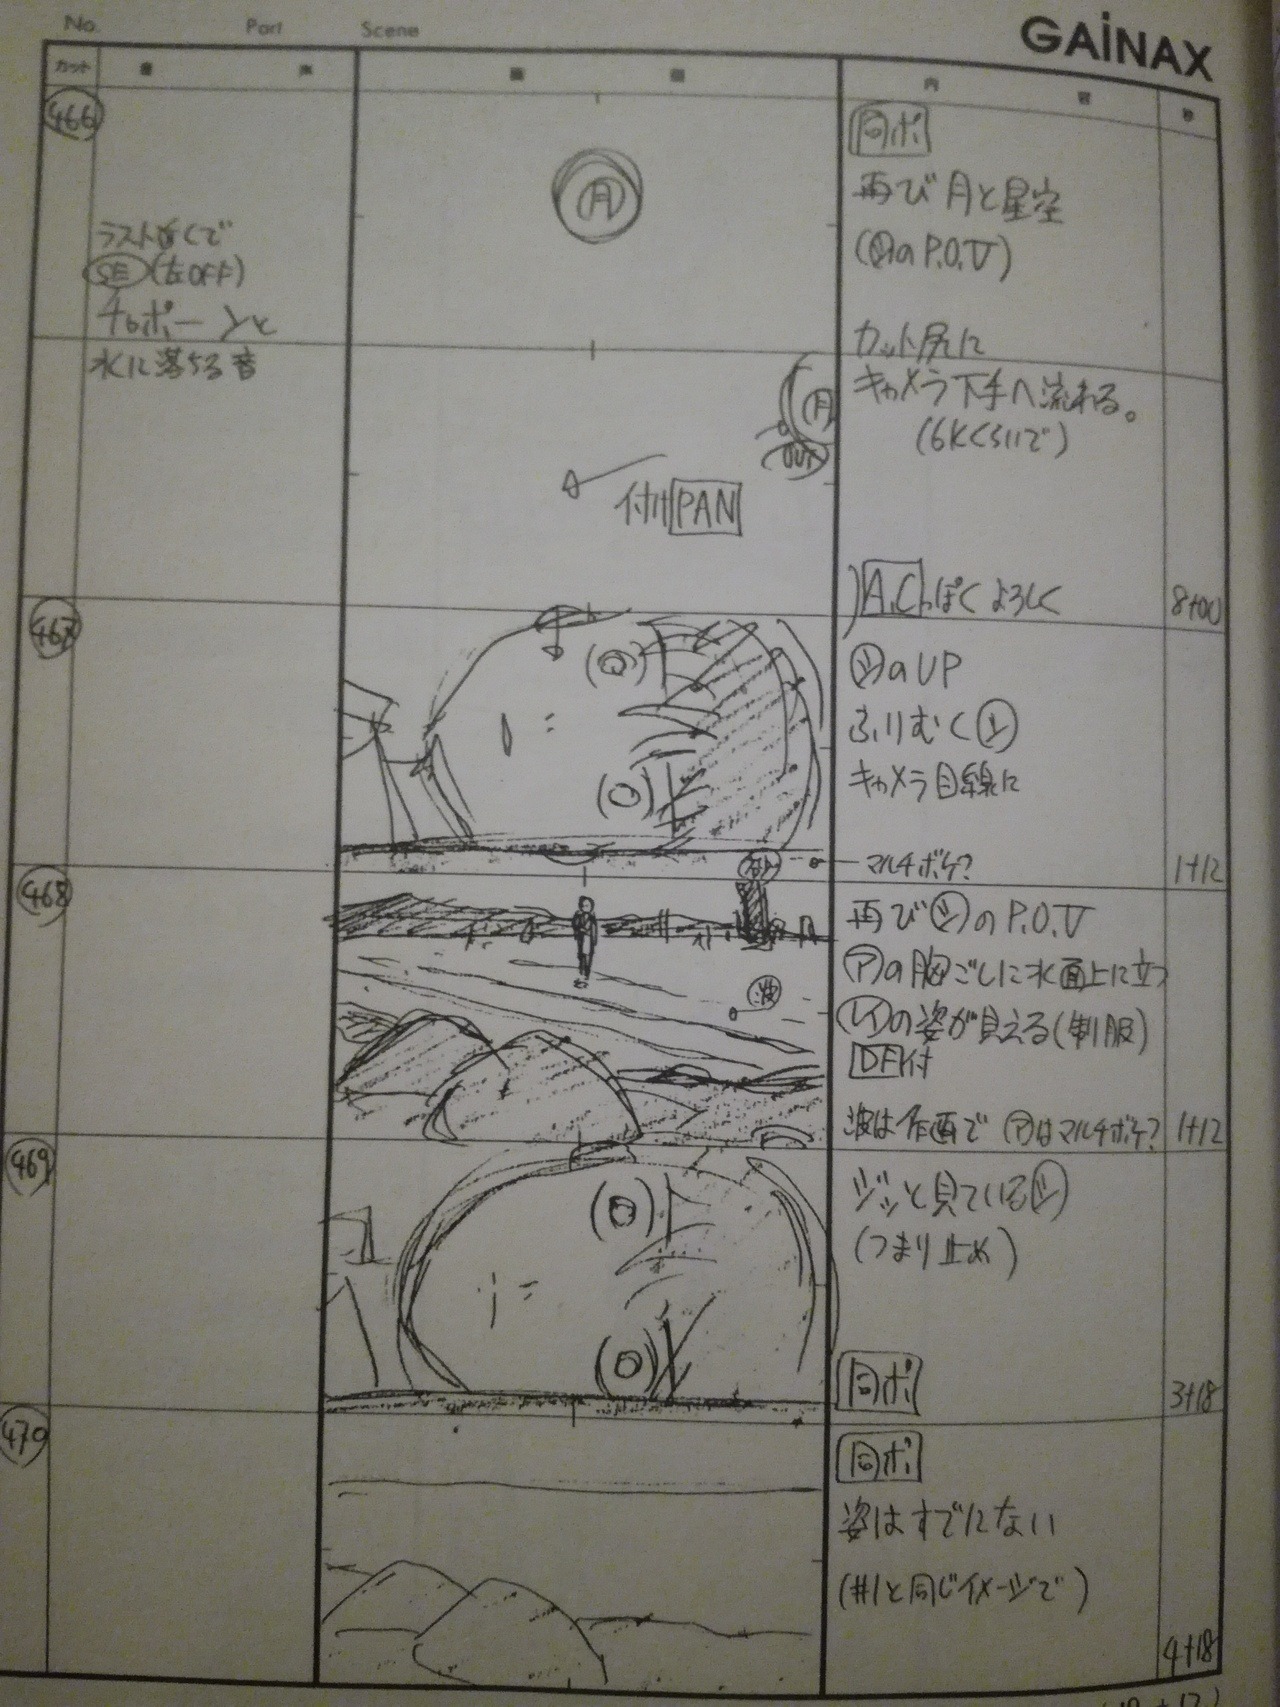 No.
Part
Scene
GAiNAX
カット
内
容
秒
466
ラスト近くで
SE (左OFF)
チャポーンと
水に落ちる音
月
同ポ
再び月と星空
(シのP.O.V)
カット尻に
キャメラ下手へ流れる。
(6Kくらいで)
月
OUT
付け PAN
A.C.っぽくよろしく
8+00
467
シのUP
ふりむくシ
キャメラ目線に
マルチボケ?
1+12
468
波
再びシのP.O.V
アの胸ごしに水面上に立つ
レイの姿が見える(制服)
DF付
波は作画で アはマルチボケ?
1+12
469
ジッと見ているシ
(つまり止め)
同ポ
3+18
470
同ポ
姿はすでにない
(#1と同じイメージで)
4+18